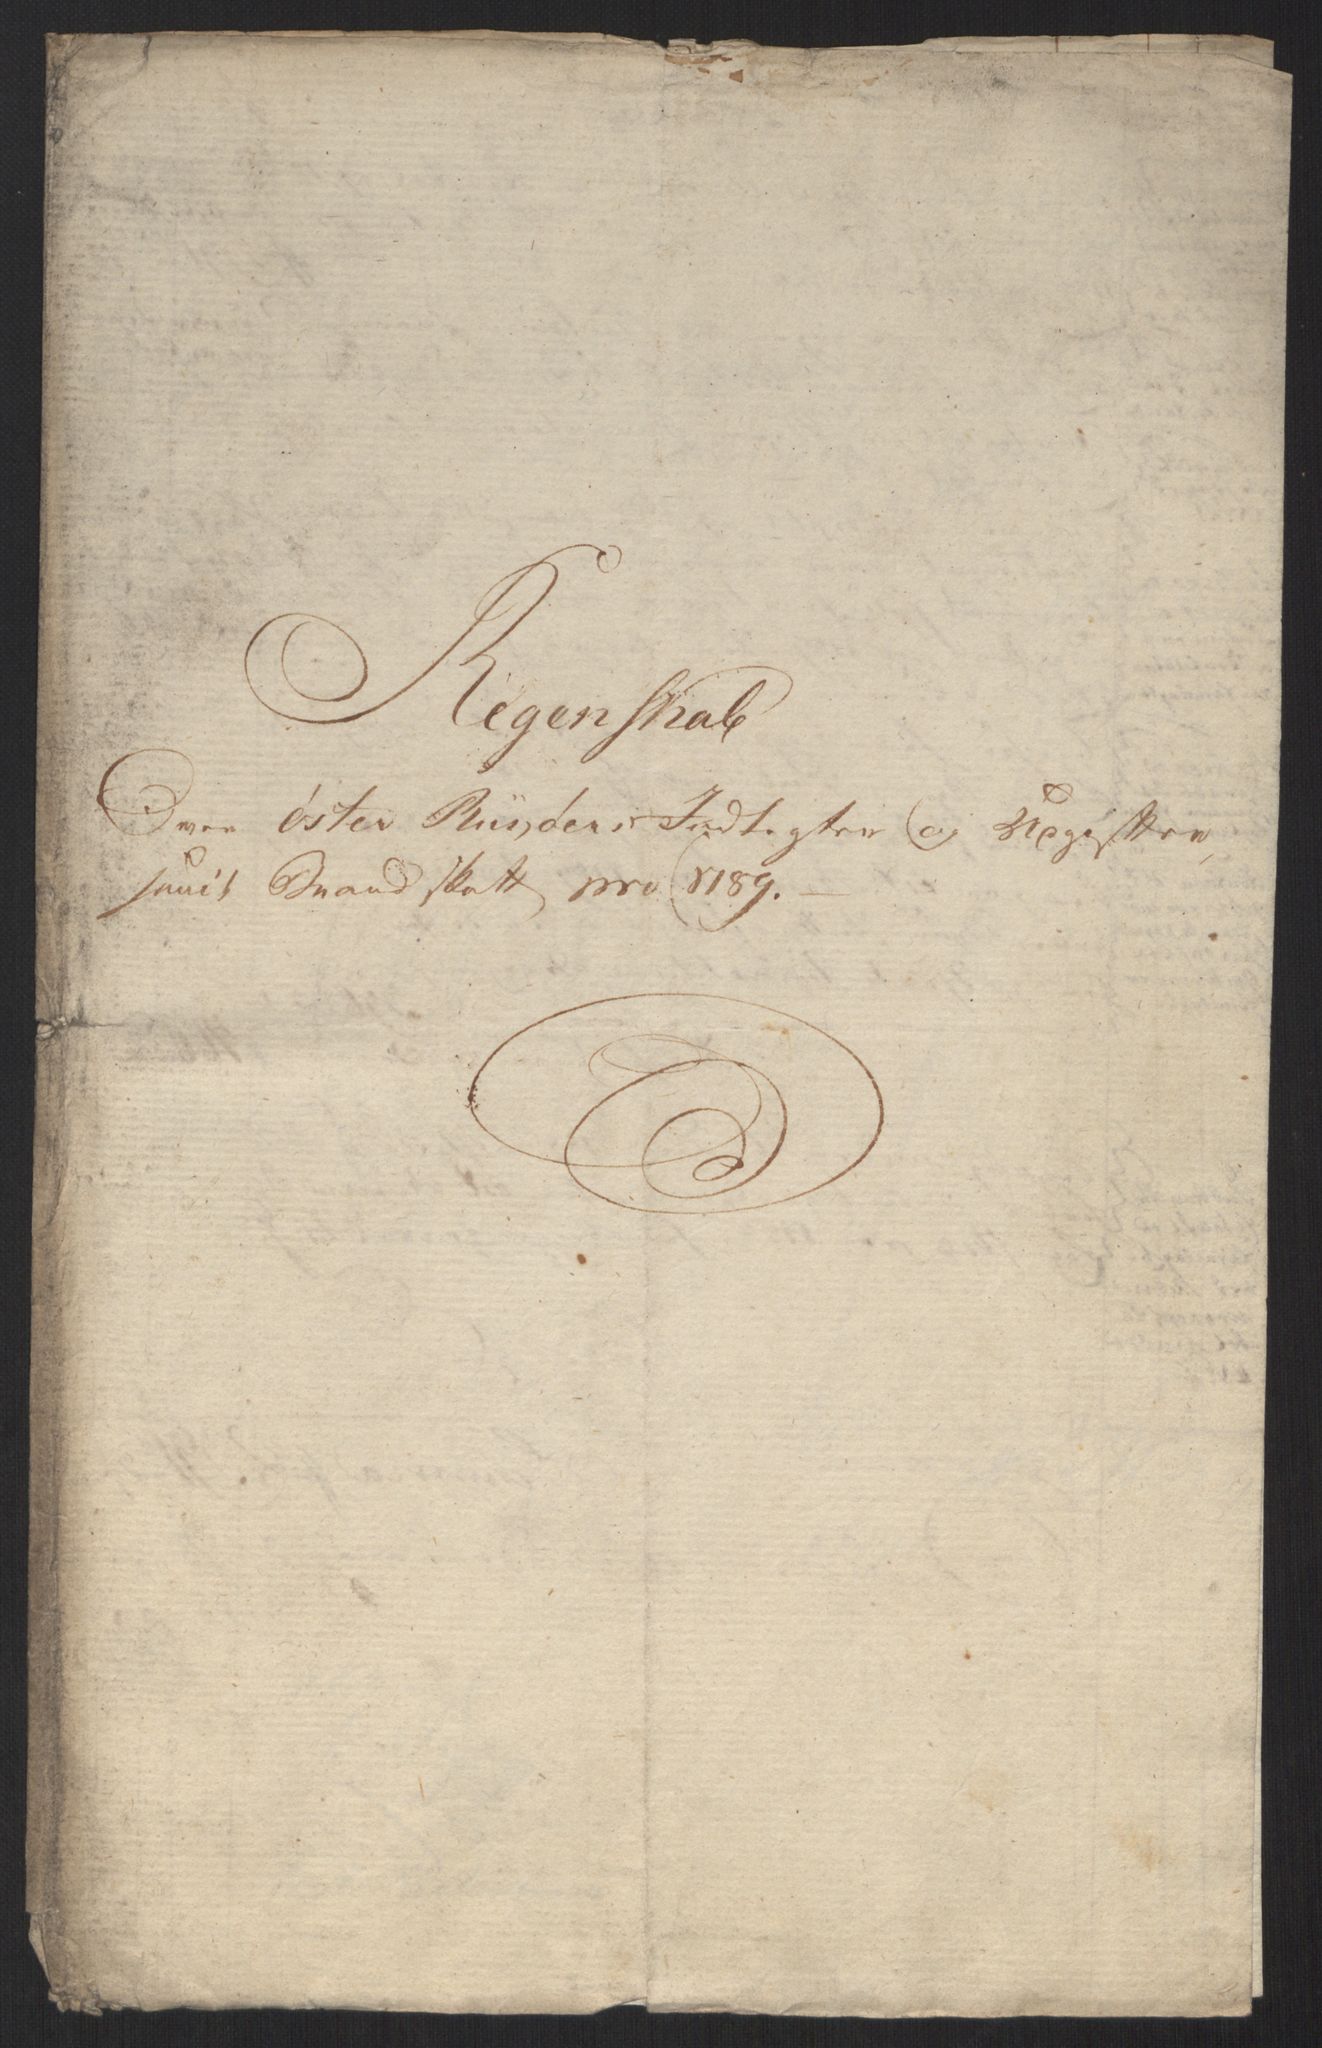 Regenskab
Over öster Riisöer Indtegter og Udgifter,
samt Brandskatt pro 1789.